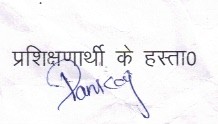 प्रशिक्षणार्थी के हस्ता0
Pankaj